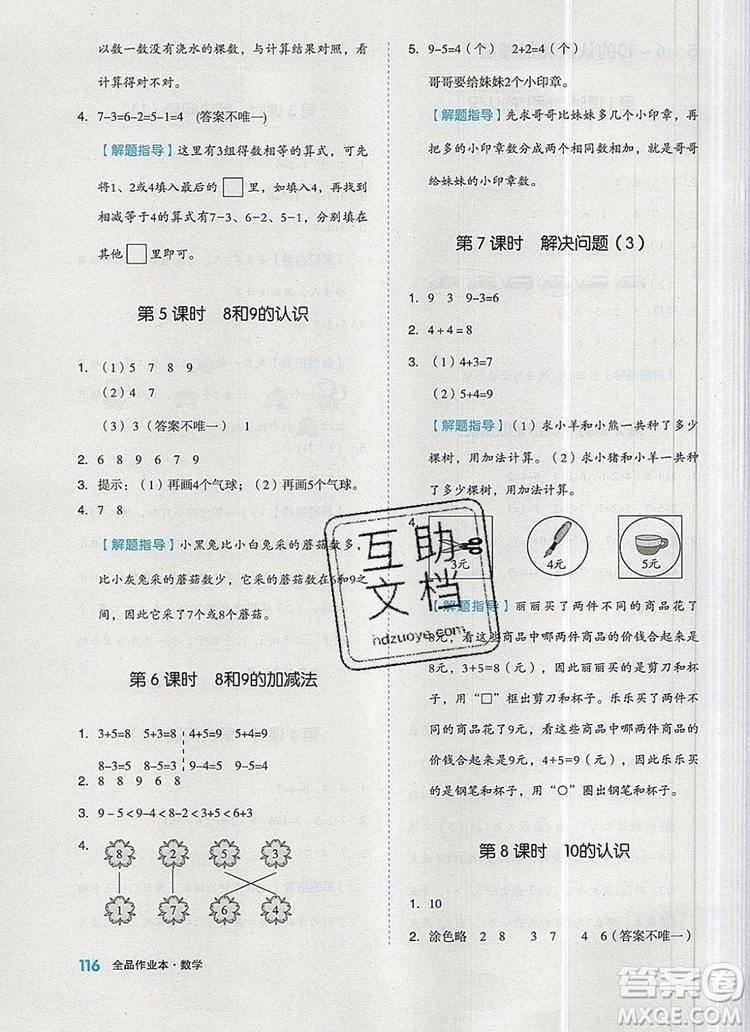 以数一数没有浇水的棵数,与计算结果对照,看
计算得对不对。
4. 7-3=6-2=5-1=4 (答案不唯一)
【解题指导】这里有3组得数相等的算式,可先
将1、2或4填入最后的□里,如填入4,再找到
相减等于4的算式有7-3、6-2、5-1,分别填在
其他□里即可。
第5课时 8和9的认识
1. (1)5 7 8 9
(2)4 7
(3)3(答案不唯一) 1
2. 6 8 9 6 7 9
3. 提示:(1)再画4个气球;(2)再画1个气球。
4. 7 8
【解题指导】小黑兔比小白兔采的蘑菇数多,
比小灰兔采的蘑菇数少,它采的蘑菇数在6和9之
间,因此它采了7个或8个蘑菇。
第6课时 8和9的加减法
1. 3+5=8 5+3=8 4+5=9 5+4=9
8-3=5 8-5=3 9-4=5 9-5=4
2. 8 8 9 6 8
3. 9-5<9-2<3+5<6+3
4.
8 2 5 3
1 7 6 4
116 全品作业本·数学
2. 9-5=4(个) 2+2=4(个)
哥哥要给妹妹2个小印章。
【解题指导】先求哥哥比妹妹多几个小印章,再
把多的小印章数分成两个相同数相加,就是哥哥
给妹妹的小印章数。
第7课时 解决问题(3)
1. 9 3 9-3=6
2. 4+4=8
3. (1)4+3=7
(2)5+4=9
【解题指导】(1)求小羊和小熊一共种了多少
棵树,用加法计算。(2)求小猪和小羊一共种
了多少棵树,用加法计算。
4.
3元 4元 5元
【解题指导】丽丽买了两件不同的商品花了
8元,看这些商品中哪两件商品的价钱合起来
是8元,3+5=8(元),所以丽丽买的是剪刀和
杯子,用“□”框出剪刀和杯子。乐乐买了两件不
同的商品花了9元,看这些商品中哪两件商品的
价钱合起来是9元,4+5=9(元),所以乐乐买
的是钢笔和杯子,用“○”圈出钢笔和杯子。
第8课时 10的认识
1. 10
2. 涂色略 2 8 3 7 4 6(答案不唯一)
互助
文档
hdzuoye.com
答案圈
MXQE.COM